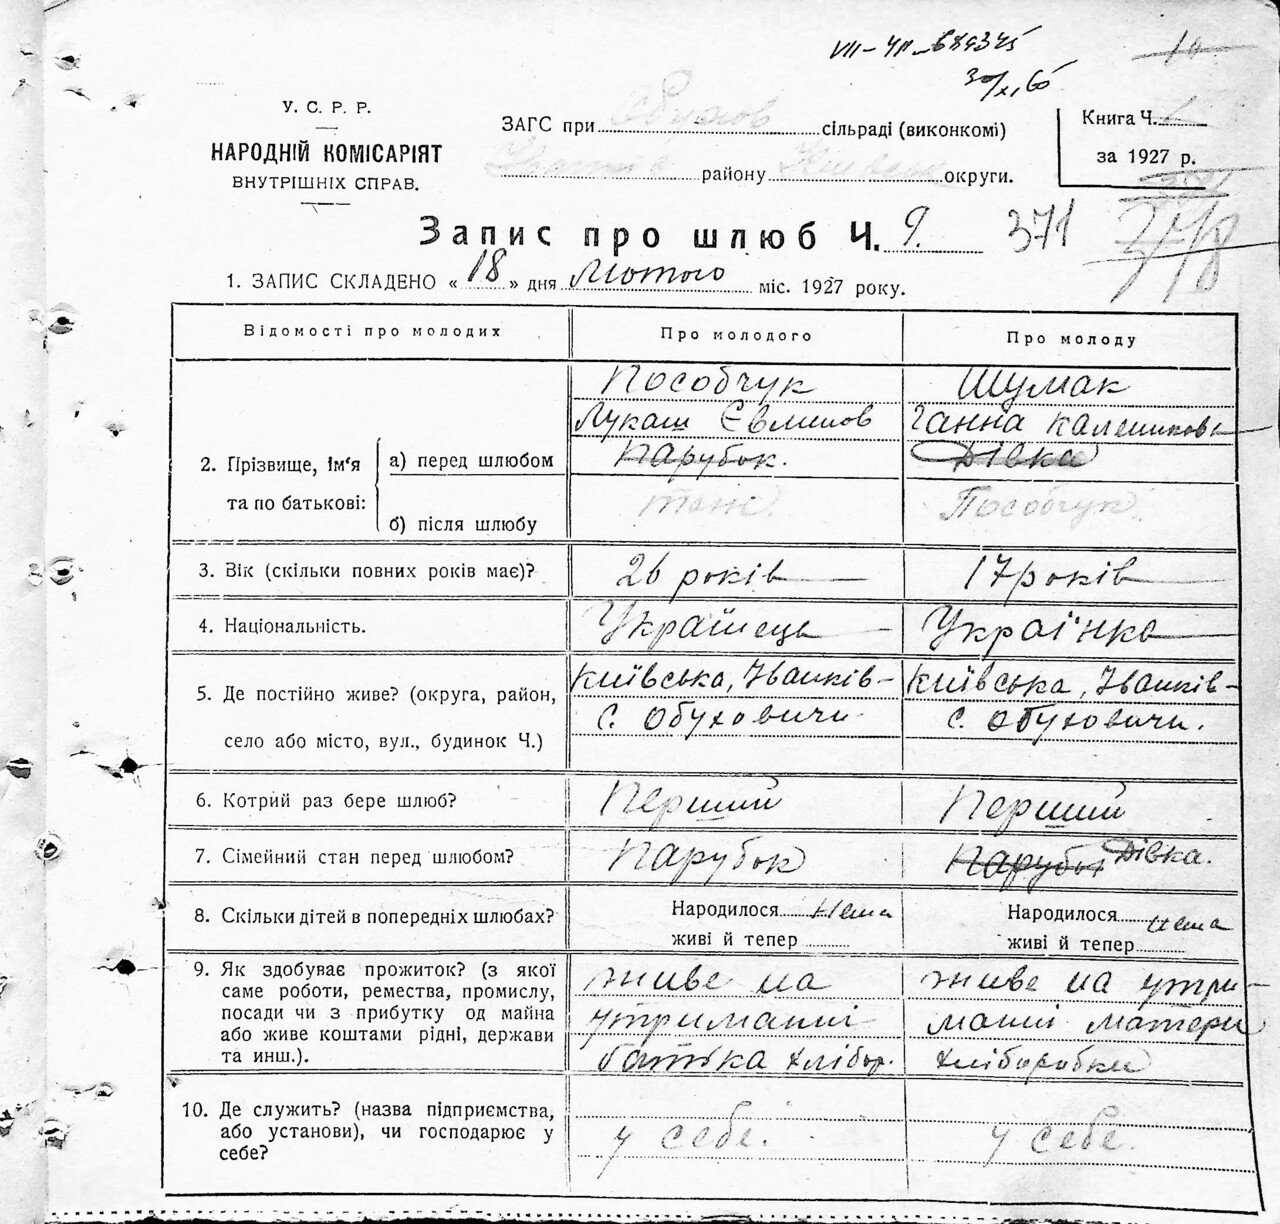 VII-ЧП
30/XI.65
У. С. Р. Р.
НАРОДНІЙ КОМІСАРІЯТ
ВНУТРІШНІХ СПРАВ.
ЗАГС при Обухов сільраді (виконкомі)
району округи.
Книга Ч.
за 1927 р.
Запис про шлюб Ч. 9. 371
1. ЗАПИС СКЛАДЕНО « 18 » дня Лютого міс. 1927 року.
Відомості про молодих Про молодого Про молоду
Пособчук Шумак
Лукаш Ганна
2. Прізвище, ім‘я а) перед шлюбом Парубок. Дівка
та по батькові: б) після шлюбу теж. Пособчук.
3. Вік (скільки повних років має)? 26 років 17 років
4. Національність. Українець Українка
5. Де постійно живе? (округа, район, Київська, Іванків- Київська, Іванків-
село або місто, вул., будинок Ч.) с. Обуховичи. с. Обуховичи.
6. Котрий раз бере шлюб? Перший Перший
7. Сімейний стан перед шлюбом? Парубок Парубок Дівка.
8. Скільки дітей в попередніх шлюбах? Народилося нема Народилося нема
живі й тепер живі й тепер
9. Як здобуває прожиток? (з якої живе на живе на утри-
саме роботи, ремества, промислу,
посади чи з прибутку од майна утриманні манні матери
або живе коштами рідні, держави
та инш.). батька хлібор. хліборобки
10. Де служить? (назва підприємства,
або установи), чи господарює у у себе. у себе.
себе?